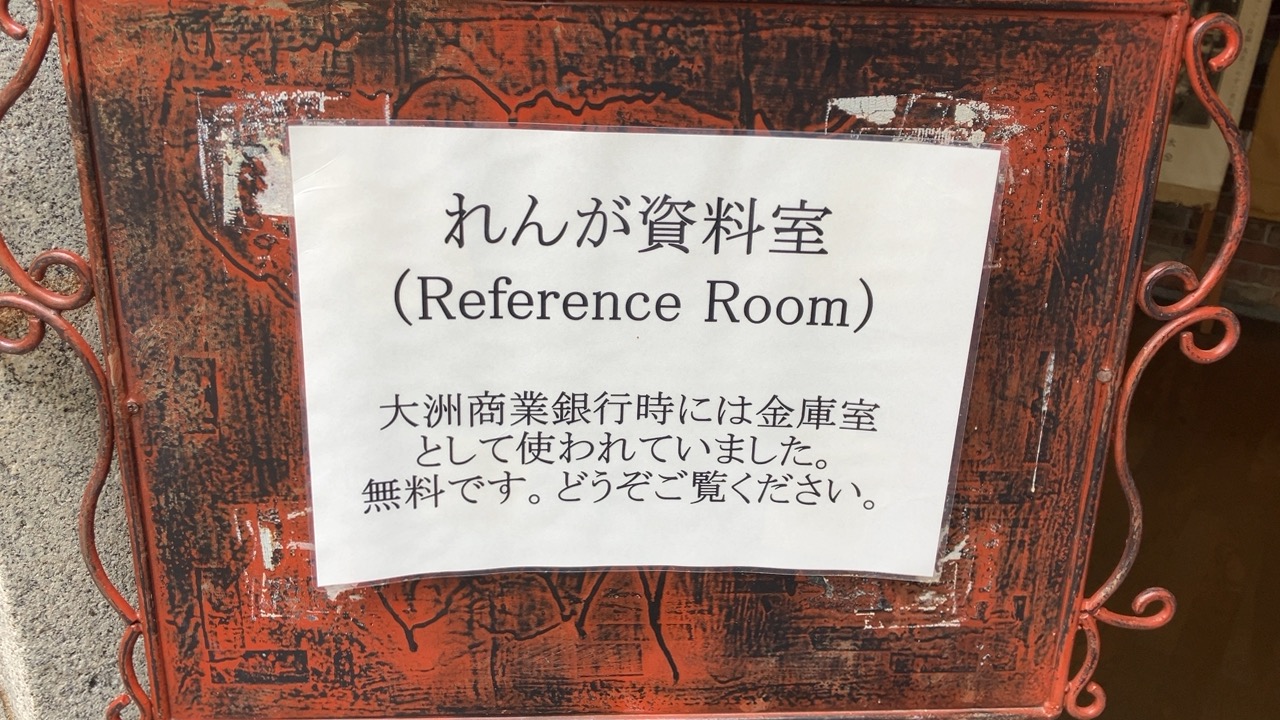 れんが資料室
（Reference Room）
大洲商業銀行時には金庫室
として使われていました。
無料です。どうぞご覧ください。